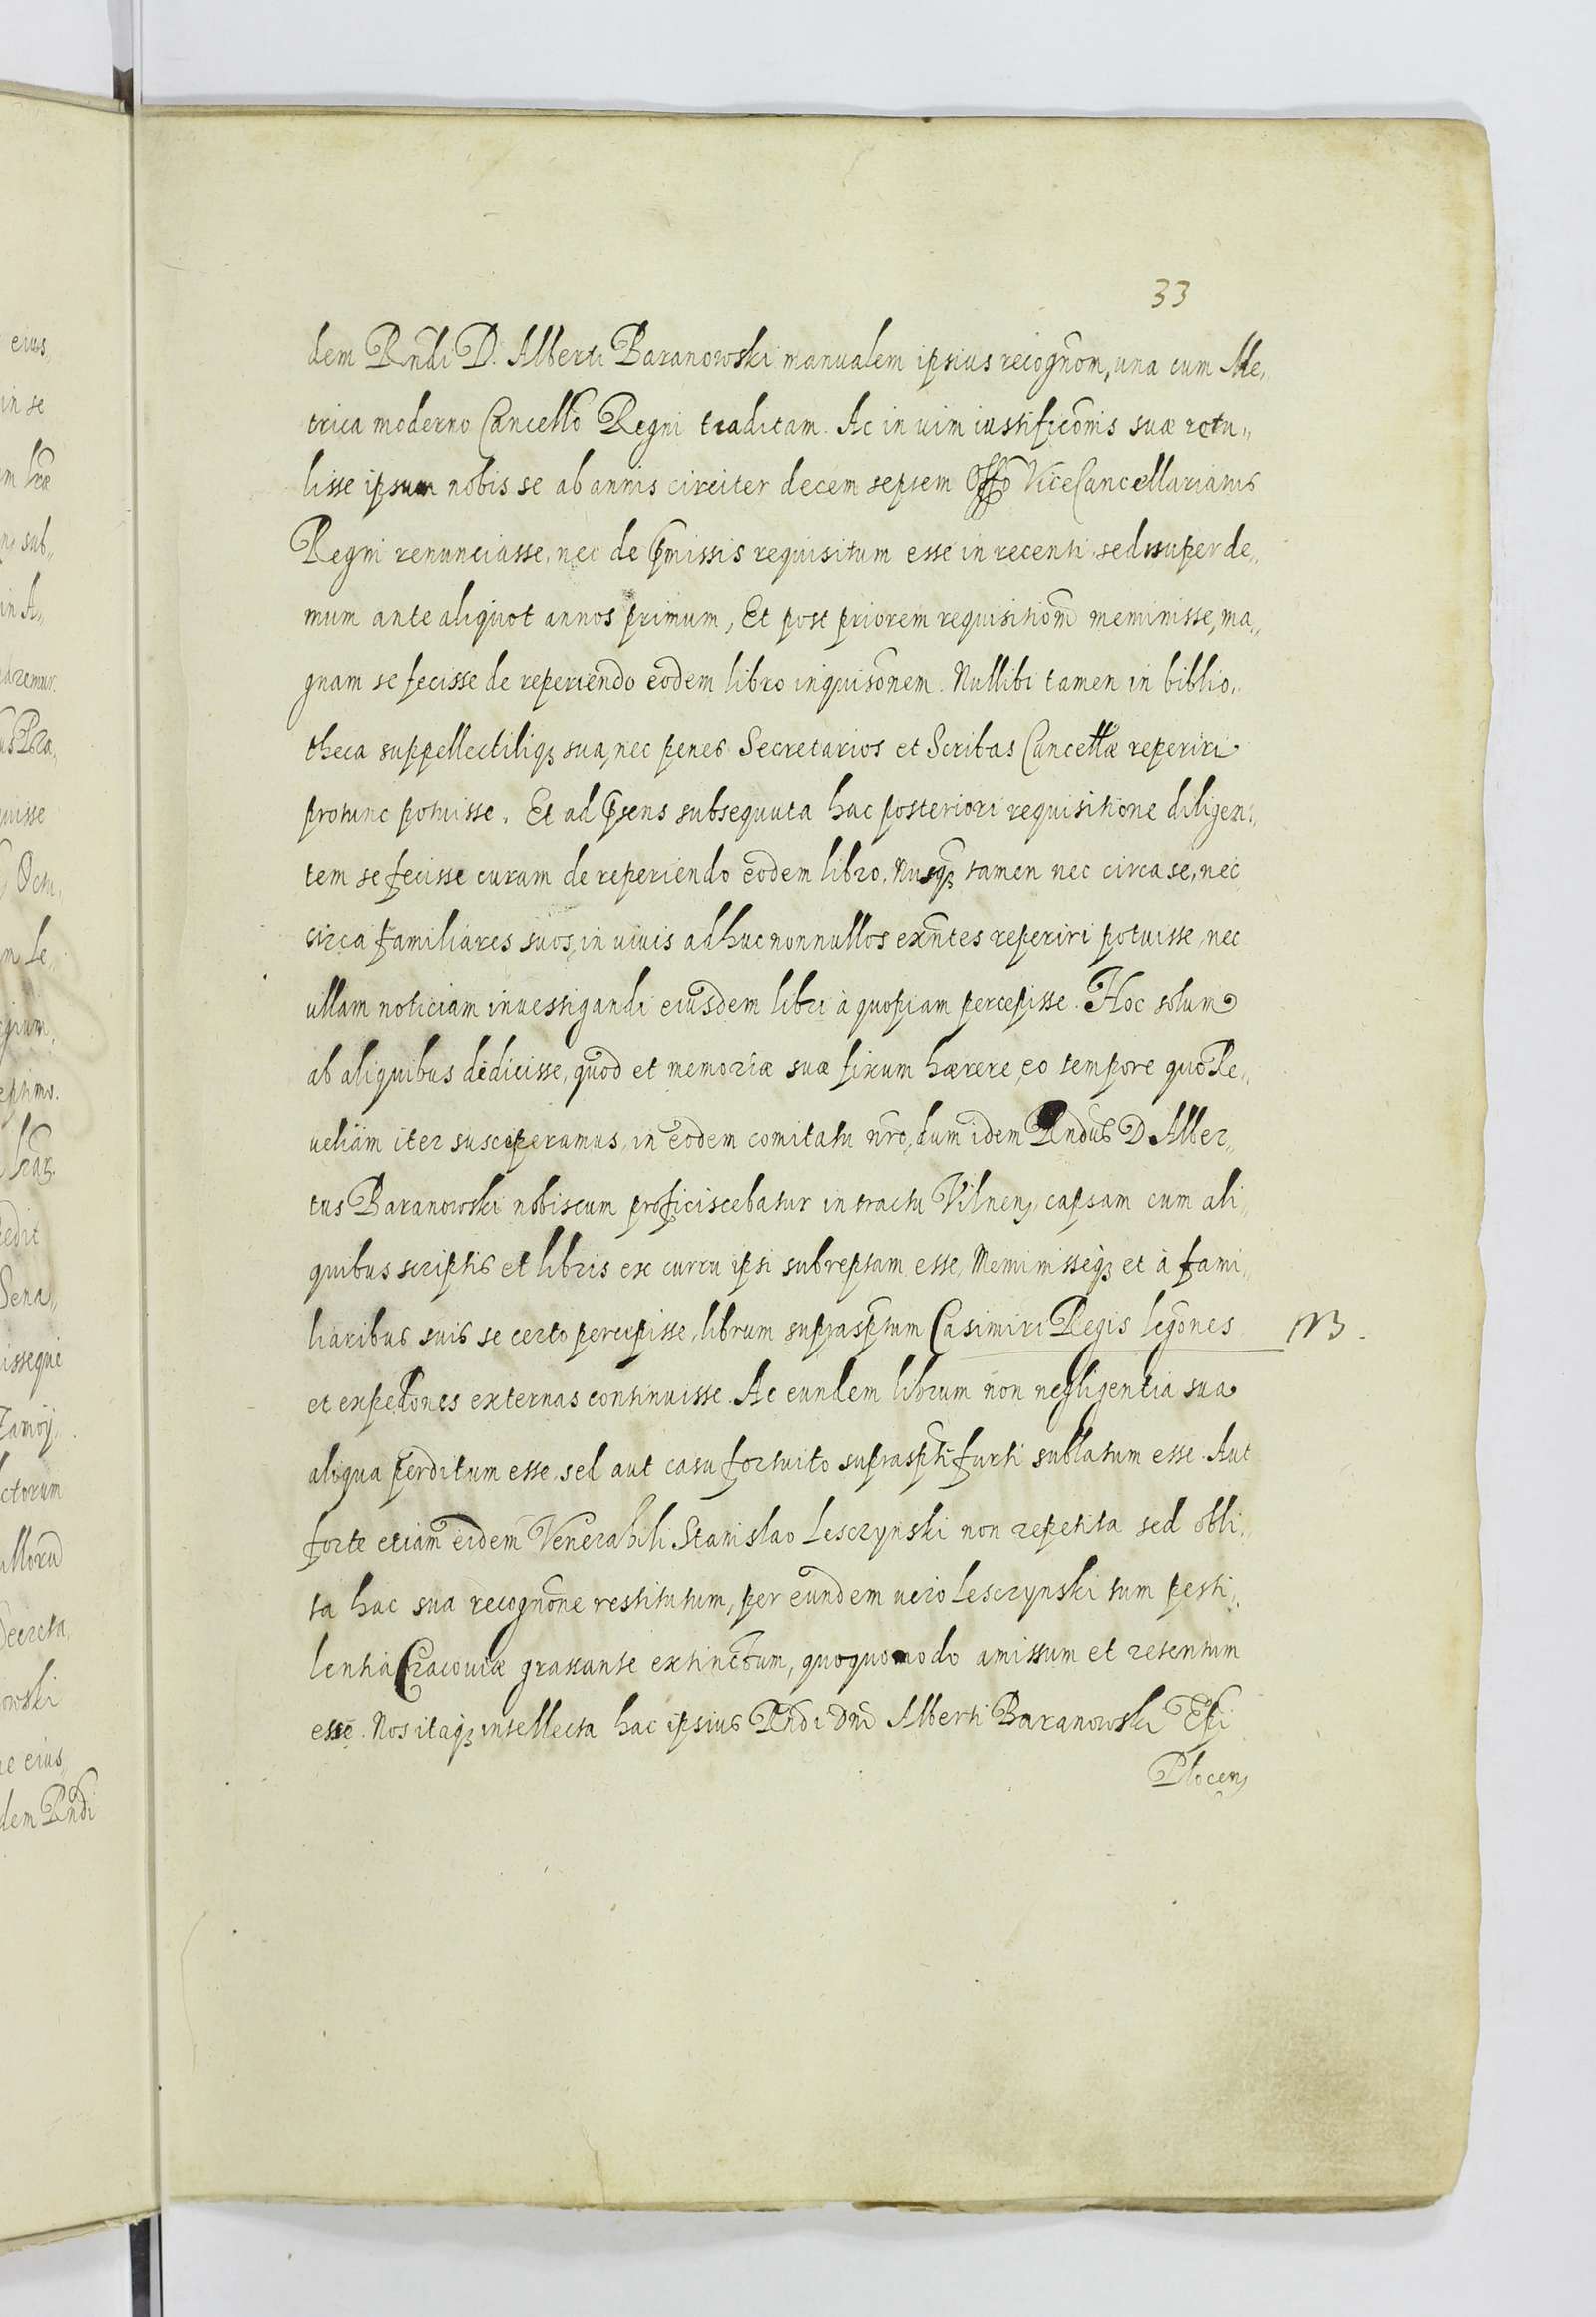 33
dem Rndi D. Alberti Baranowski manualem ipsius recognom, una cum Me„
trica moderno Cancello Regni traditam. Ac in uim iustificonis suæ retu„
lisse ipsum nobis se ab annis circiter decem septem Offo ViceCancellariatus
Regni renunciasse, nec de pmissis requisitum esse in recenti sed super de„
mum ante aliquot annos primum, Et post priorem requisitiom meminisse, ma„
gnam se fecisse de reperiendo eodem libro inquisonem. Nullibi tamen in biblio„
theca suppellectiliqꝫ sua, nec penes Secretarios et Scribas Cancellæ reperiri
protunc potuisse. Et ad psens subsequuta hac posteriori requisitione diligen„
tem se fecisse curam de reperiendo eodem libro. Nusqꝫ tamen nec circa se, nec
circa familiares suos, in uiuis adhuc nonnullos exntes reperiri potuisse, nec
ullam noticiam inuestigandi eiusdem libri à quopiam percepisse. Hoc solum
ab aliquibus dedicisse, quod et memoriæ suæ fixum hærere, eo tempore quo Re„
ueliam iter susceperamus, in eodem comitatu nro, dum idem Rndus D Alber„
tus Baranowski nobiscum proficiscebatur in tractu Vilnen, capsam cum ali„
quibus scriptis et libris ex curru ipsi subreptam esse, Meminisseqꝫ et à fami„
liaribus suis se certo percepisse, librum suprasptum Casimiri Regis legones
NB.
et expedones externas continuisse. Ac eundem librum non negligentia sua
aliqua perditum esse, sed aut casu fortuito supraspti furti sublatum esse. Aut
forte etiam eidem Venerabili Stanislao Lesczynski non repetita sed obli„
ta hac sua recognone restitutum, per eundem uero Lesczynski tum pesti„
lentia Cracouiæ grassante extinctum, quoquomodo amissum et retentum
esse. Nos itaqꝫ intellecta hac ipsius Rndi Dni Alberti Baranowski Epi
Plocen